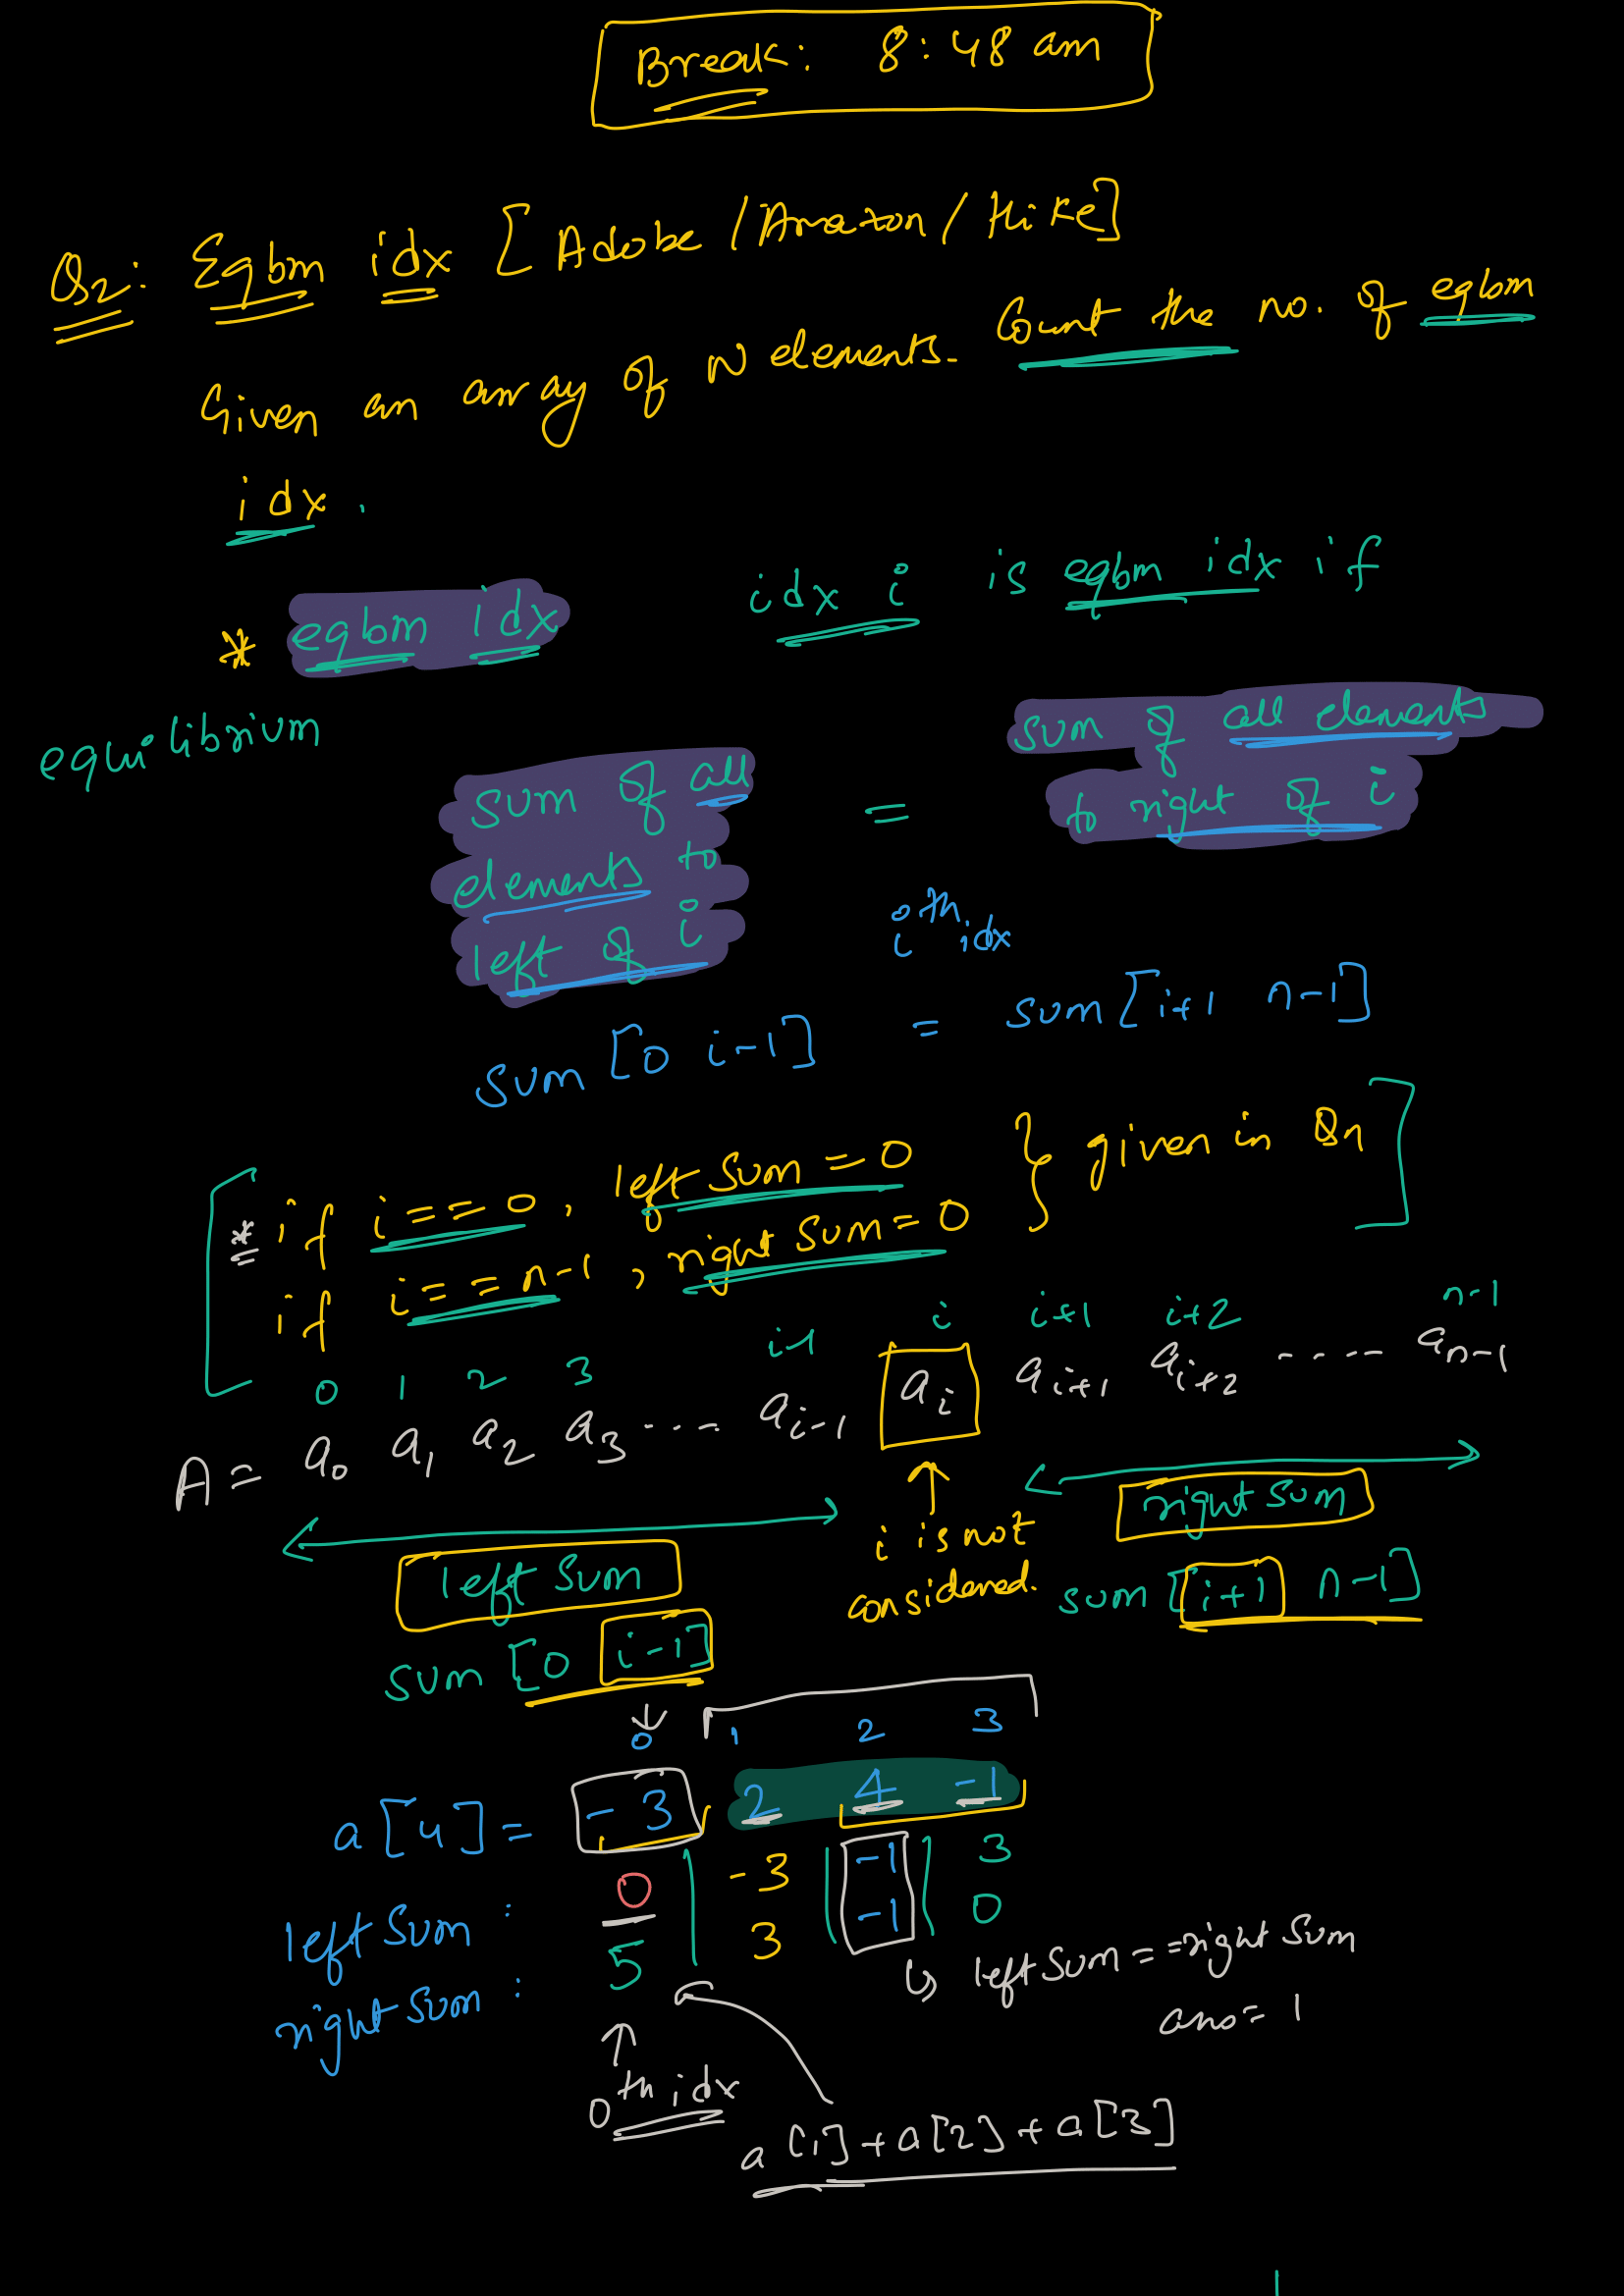 Break: 8:48 am
Q2: Eqbm idx [Adobe/Amazon/Hike]
Given an array of N elements. Count the no. of eqbm
idx.
* eqbm idx
idx i is eqbm idx if
equilibrium
sum of all
elements to
left of i
=
sum of all elements
to right of i
ith idx
sum [0 i-1] = sum [i+1 n-1]
* if i == 0, left sum = 0
if i == n-1, right sum = 0
} given in Qn
0 1 2 3 i-1 i i+1 i+2 n-1
A = a0 a1 a2 a3 ... ai-1 ai ai+1 ai+2 ..... an-1
left sum
sum [0 i-1]
i is not
considered.
right sum
sum [i+1 n-1]
0 1 2 3
a[4] = -3 2 4 -1
left sum : 0 -3 -1 3
right sum : 5 3 -1 0
left sum == right sum
ans = 1
0th idx
a[1]+a[2]+a[3]